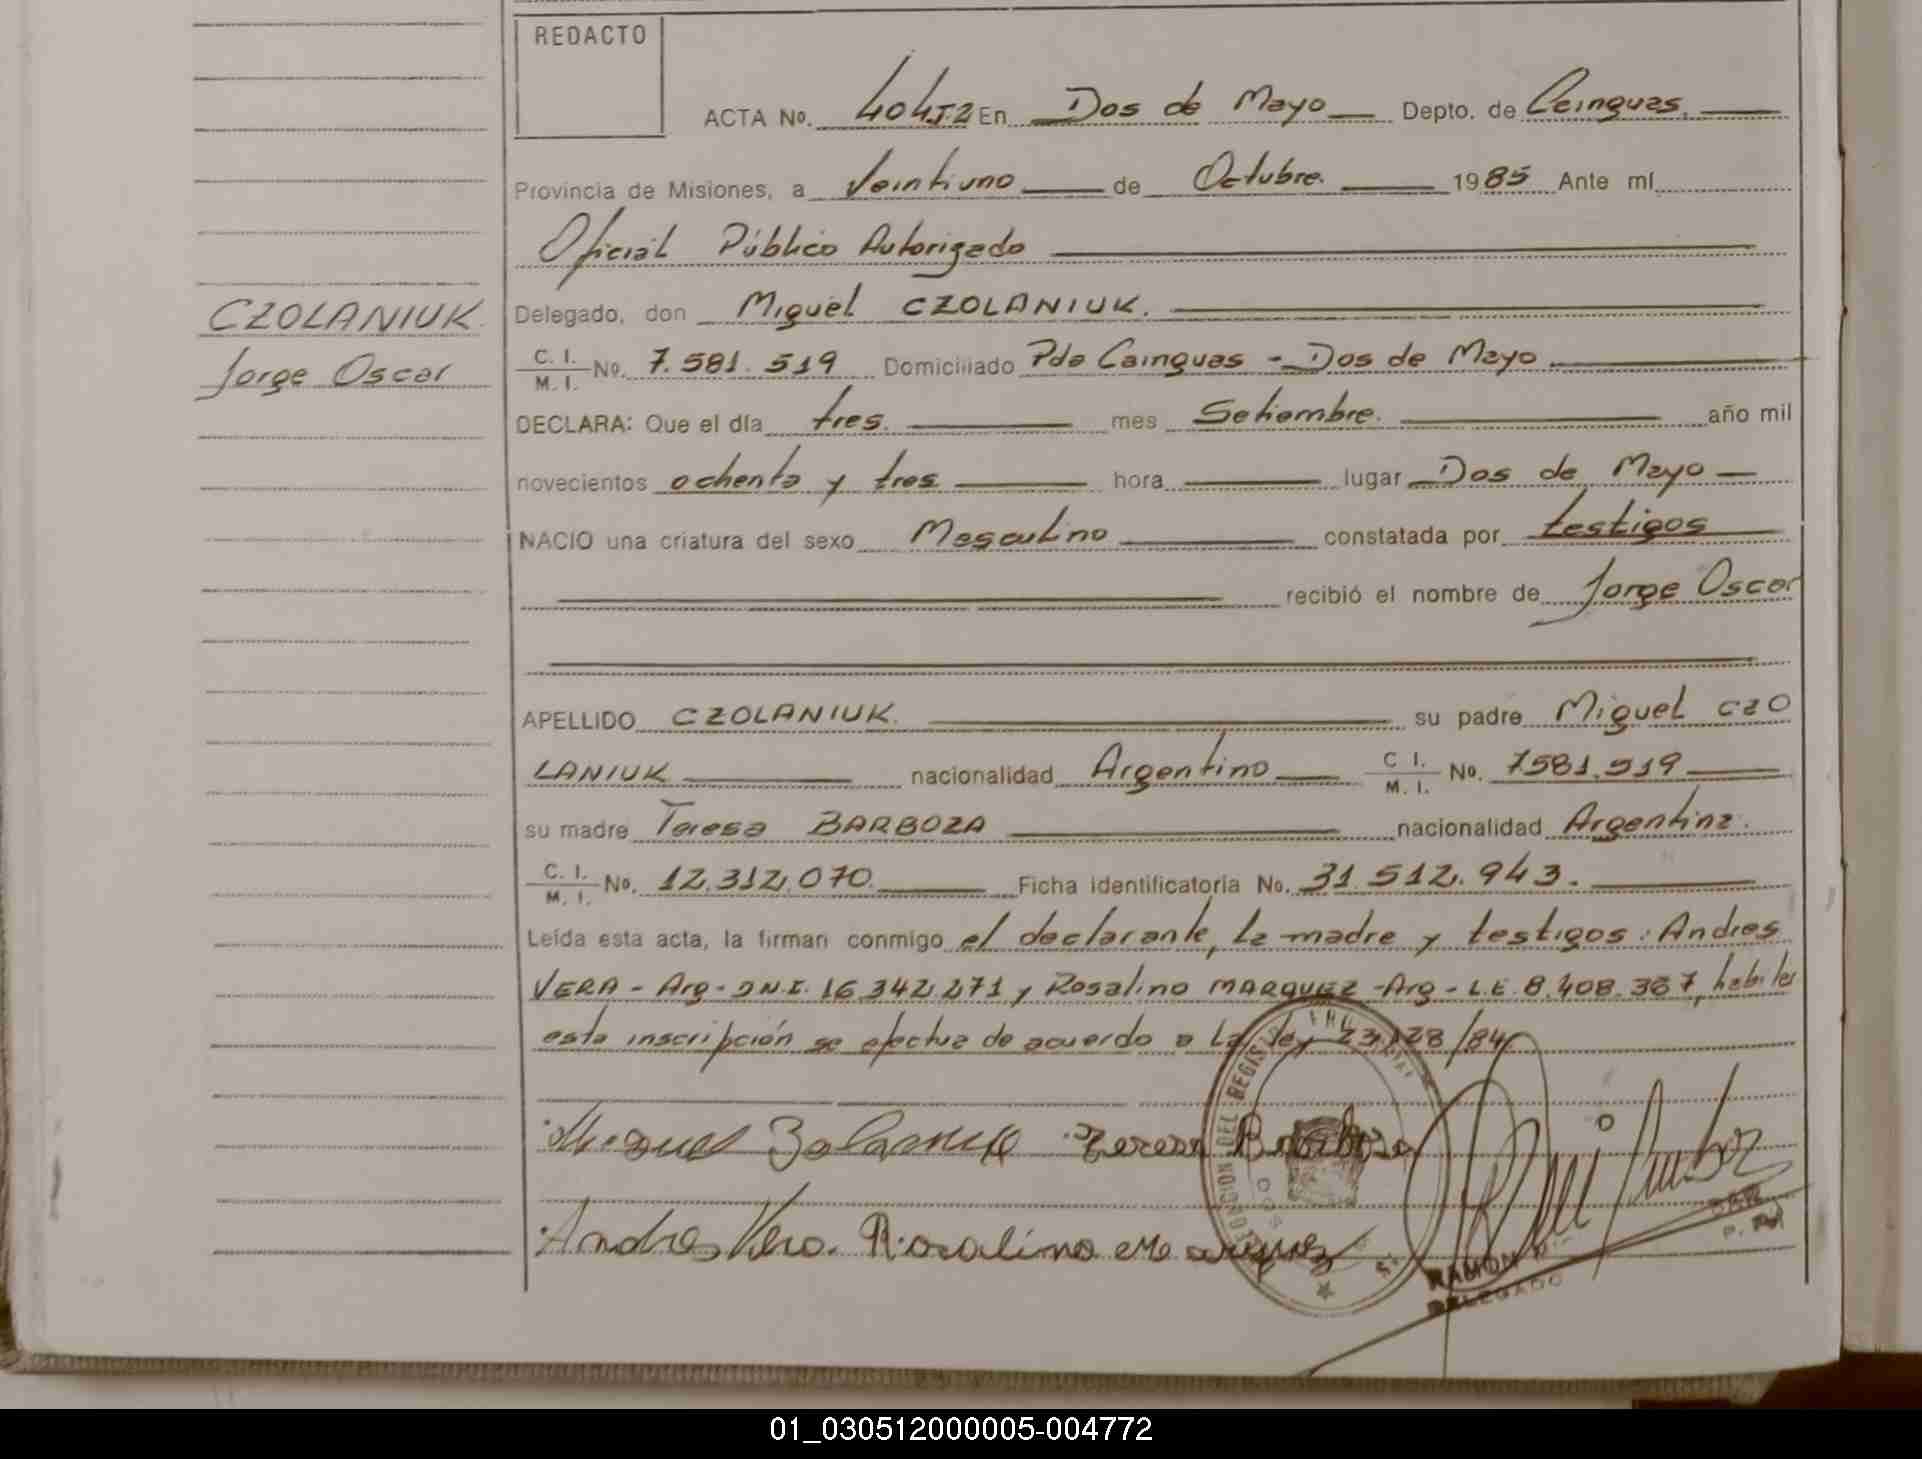 REDACTO
ACTA No. 404T2 En Dos de Mayo Depto. de Cainguas.
Provincia de Misiones, a Veintiuno de Octubre. 1985 Ante mí
Oficial Público Autorizado
CZOLANIUK
Jorge Oscar
Delegado, don Miguel CZOLANIUK.
C. I. M. I. No. 7.581.519 Domiciliado Pdo Cainguas - Dos de Mayo
DECLARA: Que el día tres. mes Setiembre. año mil
novecientos ochenta y tres hora lugar Dos de Mayo
NACIO una criatura del sexo Masculino constatada por testigos
recibió el nombre de Jorge Oscar
APELLIDO CZOLANIUK. su padre Miguel CZO
LANIUK nacionalidad Argentino C I. M. I. No. 7581.519
su madre Teresa BARBOZA nacionalidad Argentina.
C. I. M. I. No. 12.312.070. Ficha Identificatoria No. 31.512.943.
Leída esta acta, la firman conmigo el declarante, la madre y testigos: Andres
VERA - Arg - D.N.I. 16.342.271 y Rosalino MARQUEZ - Arg - L.E. 8.408.367, habiles
esta inscripción se efectua de acuerdo a la ley 23.128/84
Miguel Teresa Barboza
Andres Vera. Rosalino Marquez
RAMON
DELEGADO
01_030512000005-004772